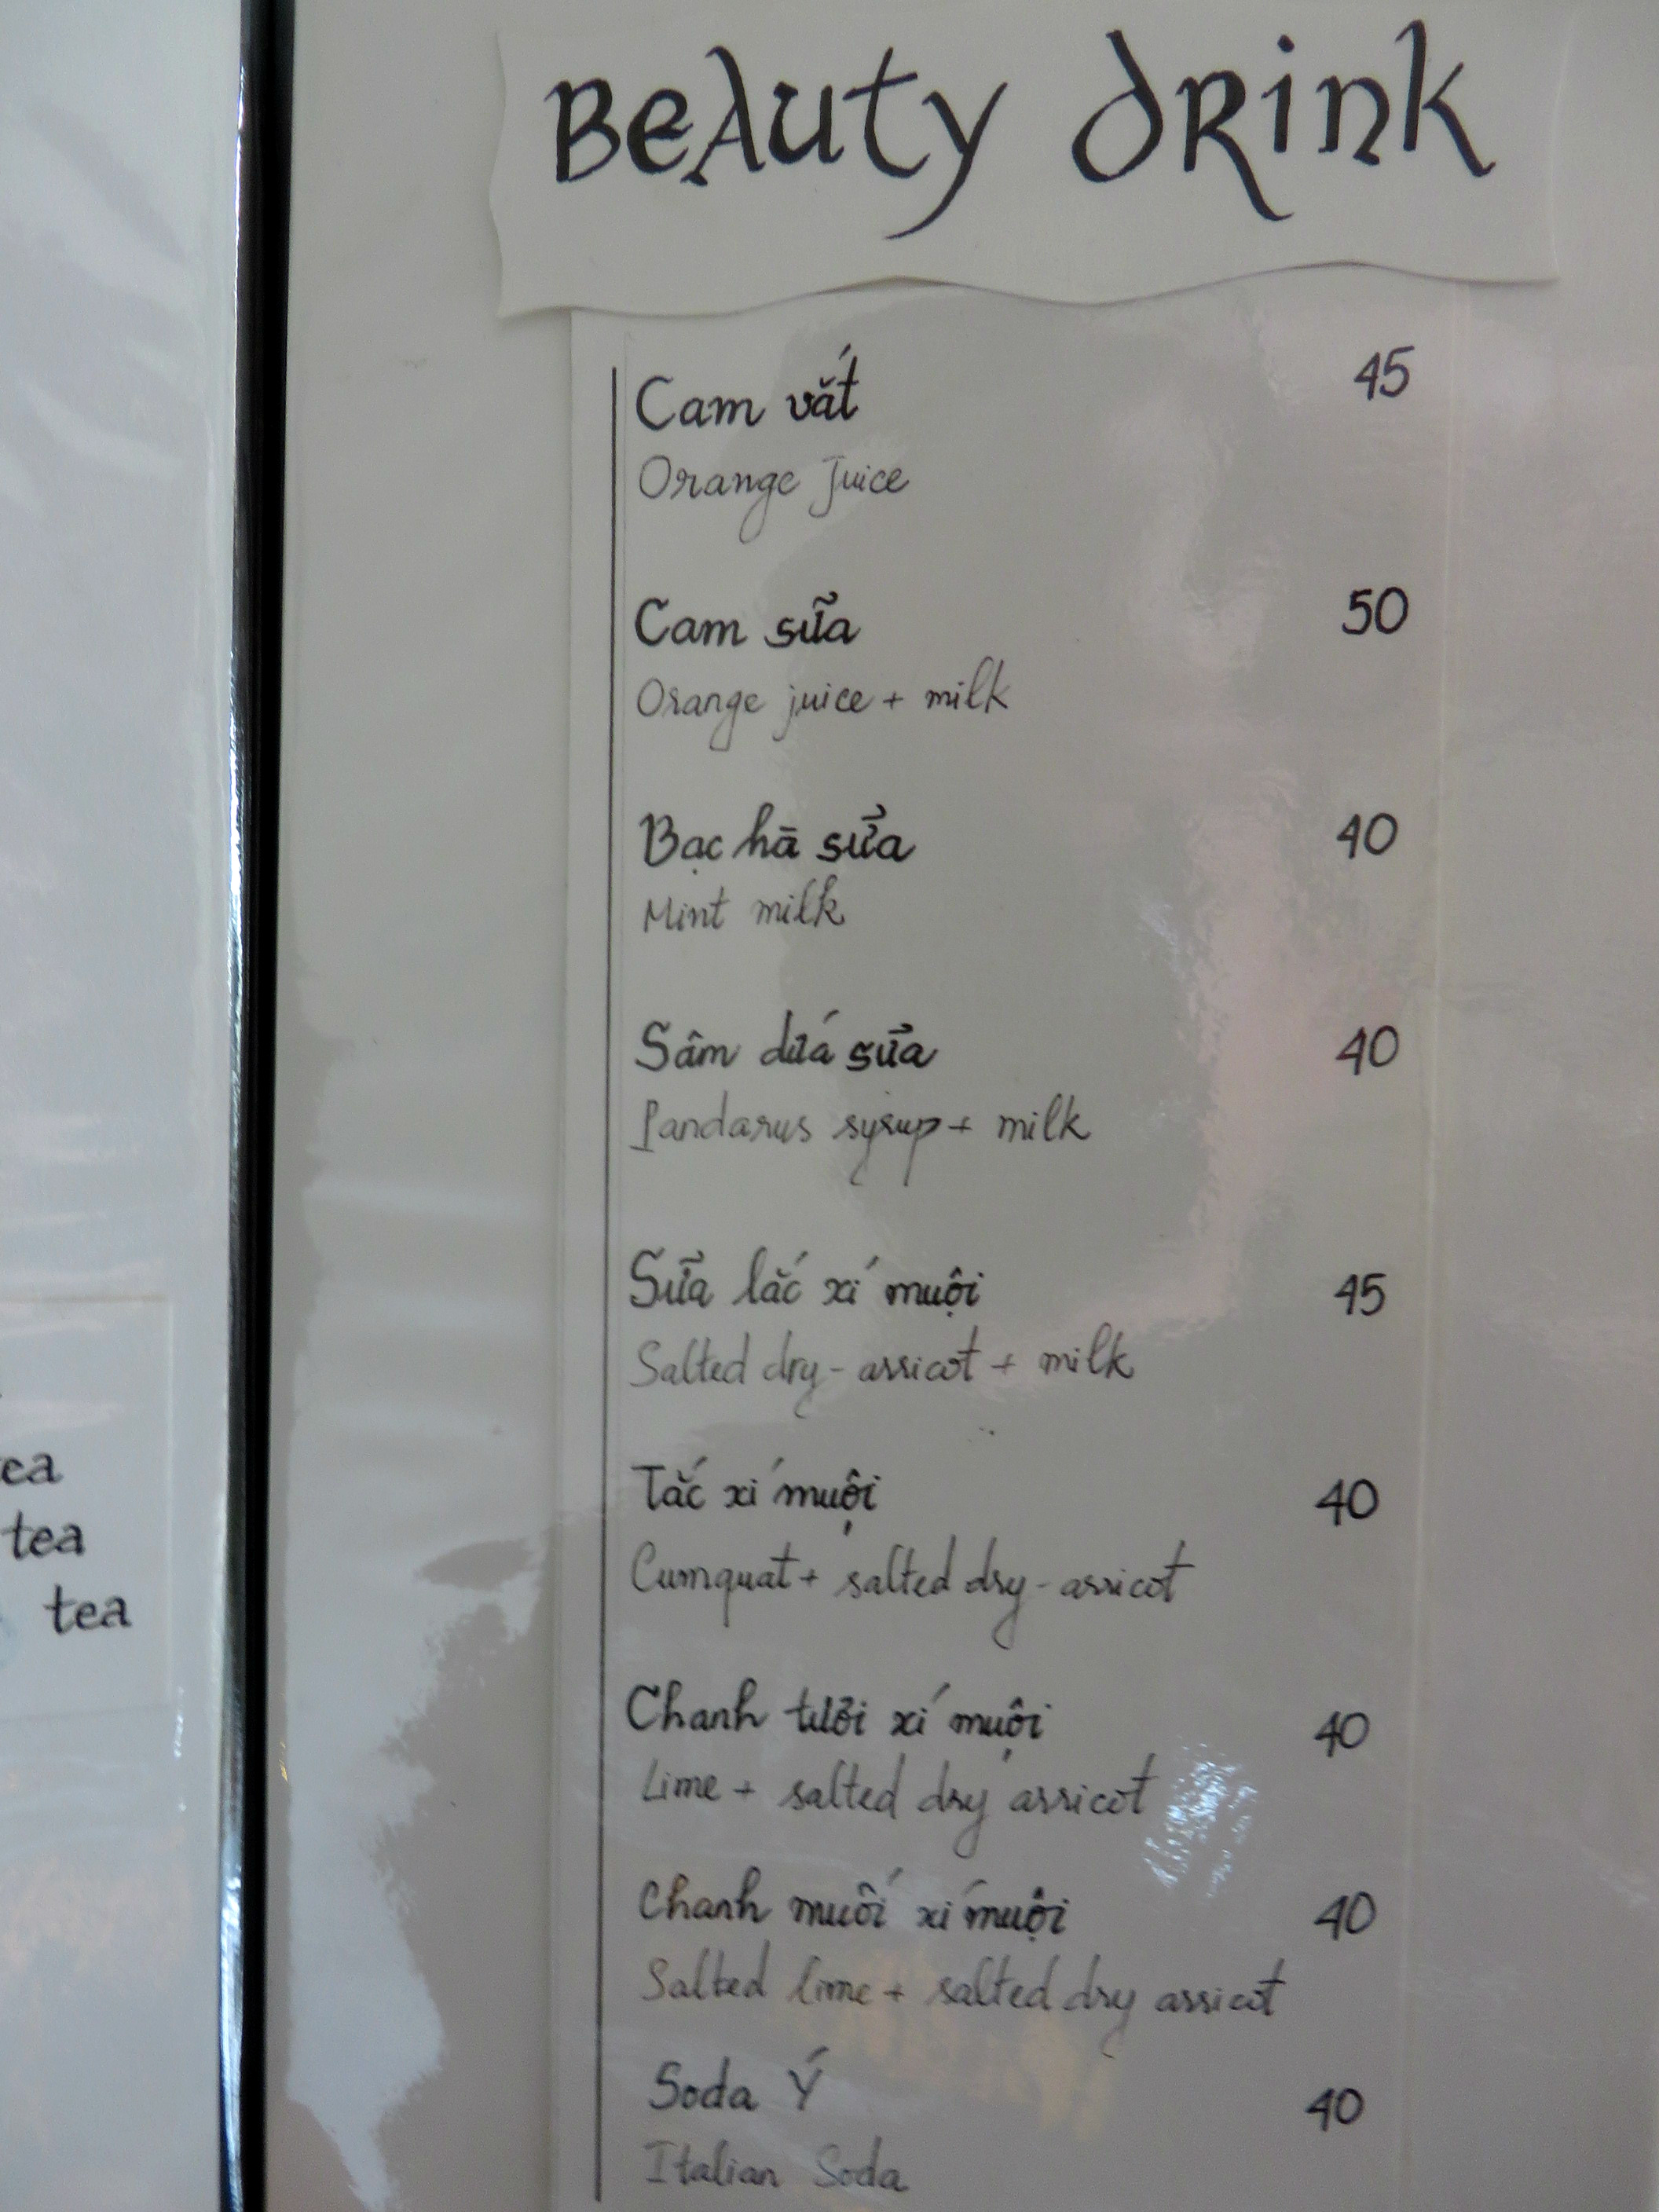 Beauty drink
Cam vắt 45
Orange Juice
Cam sữa 50
Orange juice + milk
Bạc hà sữa 40
Mint milk
Sâm dứa sữa 40
Pandarus syrup + milk
Sữa lắc xí muội 45
Salted dry - arricot + milk
Tắc xí muội 40
Cumquat + salted dry - arricot
Chanh tươi xí muội 40
Lime + salted dry arricot
Chanh muối xí muội 40
Salted lime + salted dry arricot
Soda Ý 40
Italian Soda
tea
tea